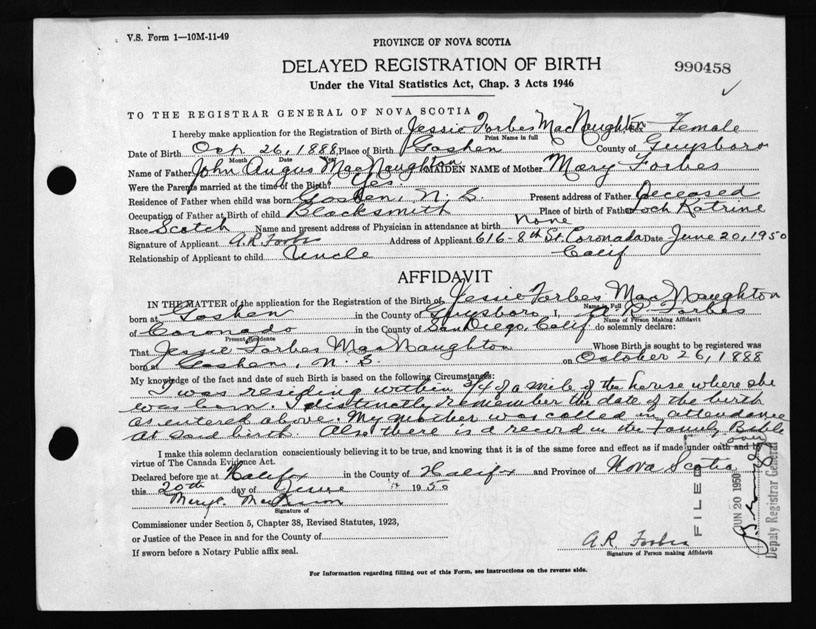 V.S. Form 1—10M-11-49
PROVINCE OF NOVA SCOTIA
DELAYED REGISTRATION OF BIRTH
990458
Under the Vital Statistics Act, Chap. 3 Acts 1946
TO THE REGISTRAR GENERAL OF NOVA SCOTIA
I hereby make application for the Registration of Birth of Jessie Forbes MacNaughton Female
Print Name in full
Date of Birth Oct. 26, 1888 Place of Birth Goshen County of Guysboro
Month Date Year
Name of Father John Angus MacNaughton MAIDEN NAME of Mother Mary Forbes
Were the Parents married at the time of the Birth? Yes.
Residence of Father when child was born Goshen, N. S. Present address of Father Deceased
Occupation of Father at Birth of child Blacksmith Place of birth of Father Loch Katrine
Race Scotch Name and present address of Physician in attendance at birth None
Signature of Applicant A.R Forbes Address of Applicant 616-8th St. Coronado Date June 20, 1950
Relationship of Applicant to child Uncle Calif
AFFIDAVIT
IN THE MATTER of the application for the Registration of the Birth of Jessie Forbes MacNaughton
Name in Full
born at Goshen in the County of Guysboro I, A R Forbes
Name of Person Making Affidavit
of Coronado in the County of San Diego, Calif. do solemnly declare:
Present Residence
That Jessie Forbes MacNaughton Whose Birth is sought to be registered was
born at Goshen, N. S. on October 26, 1888
My knowledge of the fact and date of such Birth is based on the following Circumstances:
I was residing within 3/4 of a mile of the house where she
was born. I distinctly remember the date of the birth
as entered above. My mother was called in attendance
at said birth. Also there is a record in the Family Bible
over
I make this solemn declaration conscientiously believing it to be true, and knowing that it is of the same force and effect as if made under oath and in
virtue of The Canada Evidence Act.
Declared before me at Halifax in the County of Halifax and Province of Nova Scotia
this 20th day of June 1950
Signature of
Commissioner under Section 5, Chapter 38, Revised Statutes, 1923,
or Justice of the Peace in and for the County of
If sworn before a Notary Public affix seal.
A.R Forbes
Signature of Person making Affidavit
FILED
JUN 20 1950
Deputy Registrar General
For Information regarding filling out of this Form, see instructions on the reverse side.